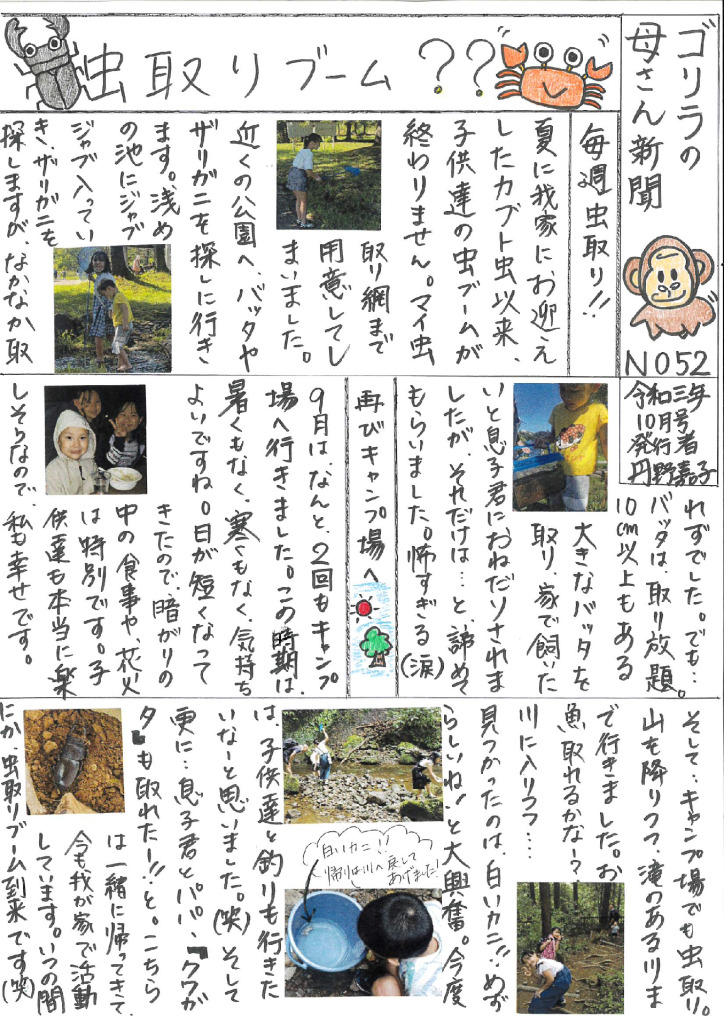 ゴリラの
母さん新聞
NO52
令和三年
10月号
発行者
丹野嘉子
虫取りブーム??
毎週虫取り!!
夏に我家にお迎え
したカブト虫以来、
子供達の虫ブームが
終わりません。マイ虫
取り網まで
用意してし
まいました。
近くの公園へ、バッタや
ザリガニを探しに行き
ます。浅め
の池にジャブ
ジャブ入ってい
き、ザリガニを
探しますが、なかなか取
れずでした。でも…。
バッタは、取り放題。
10cm以上もある
大きなバッタを
取り、家で飼いた
いと息子君におねだりされま
したが、それだけは…と、諦めて
もらいました。怖すぎる(涙)
再びキャンプ場へ
9月は、なんと、2回もキャンプ
場へ行きました。この時期は、
暑くもなく、寒くもなく、気持ち
よいですね。日が短くなって
きたので、暗がりの
中の食事や、花火
は特別です。子
供達も本当に楽
しそうなので、私も幸せです。
そして、キャンプ場でも虫取り。
山を降りつつ、滝のある川ま
で行きました。お
魚取れるかな〜?
川に入りつつ…
見つかったのは、白いカニ!!めず
らしいね!と大興奮。今度
は、子供達と釣りも行きた
いなーと思いました。(笑)そして
更に…息子君とパパ、クワガ
タも取れたー!!と。こちら
は一緒に帰ってきて、
今も我が家で活動
しています。いつの間
にか、虫取りブーム到来です(笑)
白いカニ!!
帰りは川へ戻して
あげました!